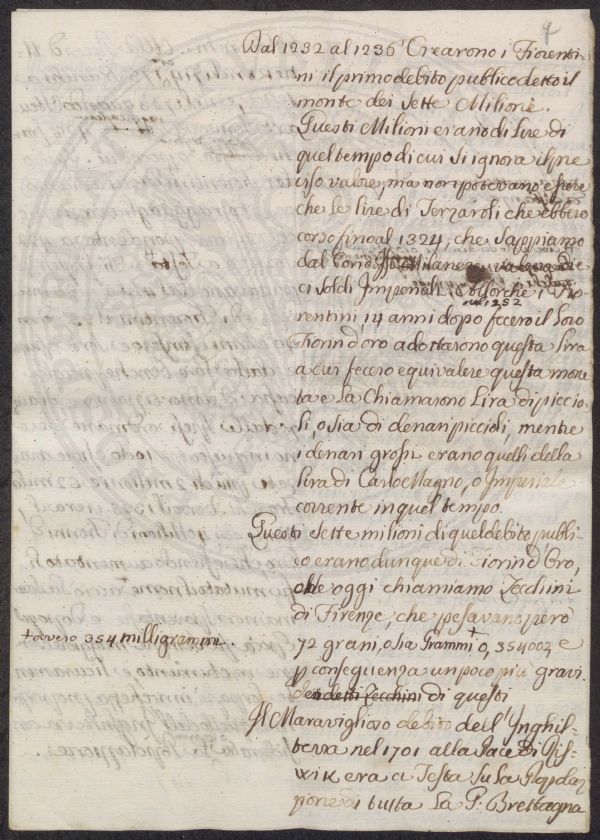 Dal 1232 al 1236 Crearono i Fiorenti=
ni il primo debito publico detto il
monte dei Sette Milioni.
Questi Milioni erano di Lire di
quel tempo di cui si ignora il pre
ciso valore, ma non potevano essere
che le lire di Terzaroli che ebbero
corso fino al 1324, che sappiamo
dal Corio
ci soldi Imperiali, Collorchè i Fio
nel 1252
rentini 14 anni dopo fecero il Loro
Fiorin d'oro adottarono questa lira
a cui fecero equivalere questa mone
ta e La Chiamarono Lira di piccio
li, o sia di denari piccioli, mentre
i denari grossi erano quelli della
Lira di Carlo Magno, o Imperiale
corrente in quel tempo.
Questi sette milioni di quel debito publi
co erano dunque di Fiorin d'Oro,
che oggi chiamiamo Zecchini
di Firenze, che pesavano però
+ ovvero 354 milligrammi.
72 grani, o sia Grammi + 0,354002 e
p conseguenza un poco più gravi
de detti Zecchini di questi
Il Maraviglioso debito dell'Inghil=
terra nel 1701 alla Pace di Ris=
wik era a Testa su La Popolaz
zione di tutta La G. Brettagna